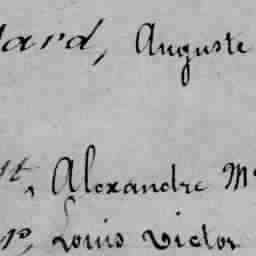 lard, Auguste
st, Alexandre M
Louis Victor